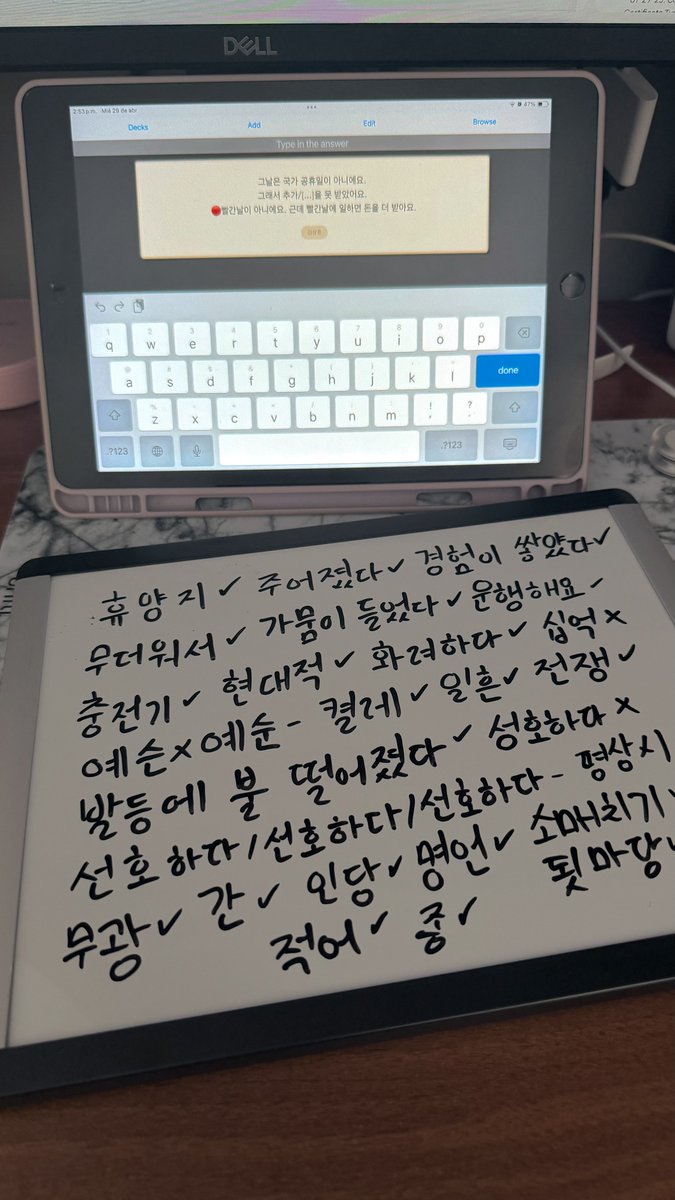 DELL
2:53 p.m. Mié 29 de abr
47%
Decks Add Edit Browse
Type in the answer
그날은 국가 공휴일이 아니에요.
그래서 추가/[...]을 못 받았어요.
🔴빨간날이 아니에요. 근데 빨간날에 일하면 돈을 더 받아요.
1 2 3 4 5 6 7 8 9 0
q w e r t y u i o p
a s d f g h j k l done
z x c v b n m ! ?
.?123 .?123
휴양지 ✓ 주어졌다 ✓ 경험이 쌓았다 ✓
무더워서 ✓ 가뭄이 들었다 ✓ 운행해요 ✓
충전기 ✓ 현대적 ✓ 화려하다 ✓ 십억 ×
예슨 × 예순 - 켤레 ✓ 일흔 ✓ 전쟁 ✓
발등에 불 떨어졌다 ✓ 성호하다 ×
선호하다/선호하다/선호하다 - 평상시
무광 ✓ 간 ✓ 인당 ✓ 명언 ✓ 소매치기
적어 ✓ 종 ✓ 뒷마당 ✓